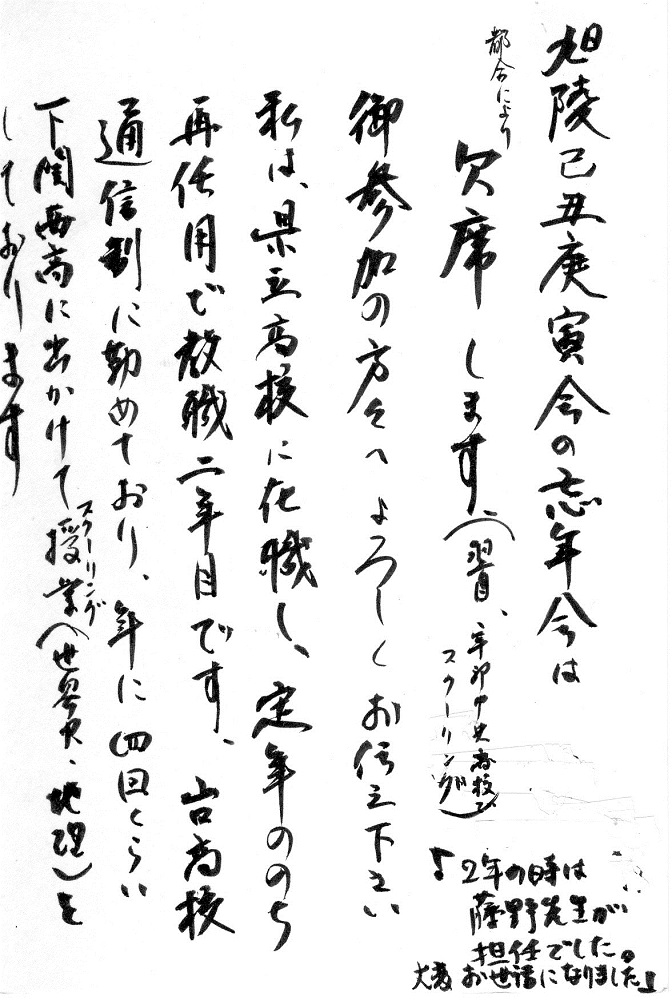 旭陵己丑庚寅会の忘年会は
都合により
欠席します、(翌日、
高校で
スクーリング)
御参加の方々へよろしくお伝え下さい
私は、県立高校に在職し、定年ののち
再任用で教職二年目です、山口高校
通信制に勤めており、年に四回くらい
下関西高に出かけて授業(世界史、地理)を
スクーリング
しております
「2年の時は
藤野先生が
担任でした。
大変お世話になりました」